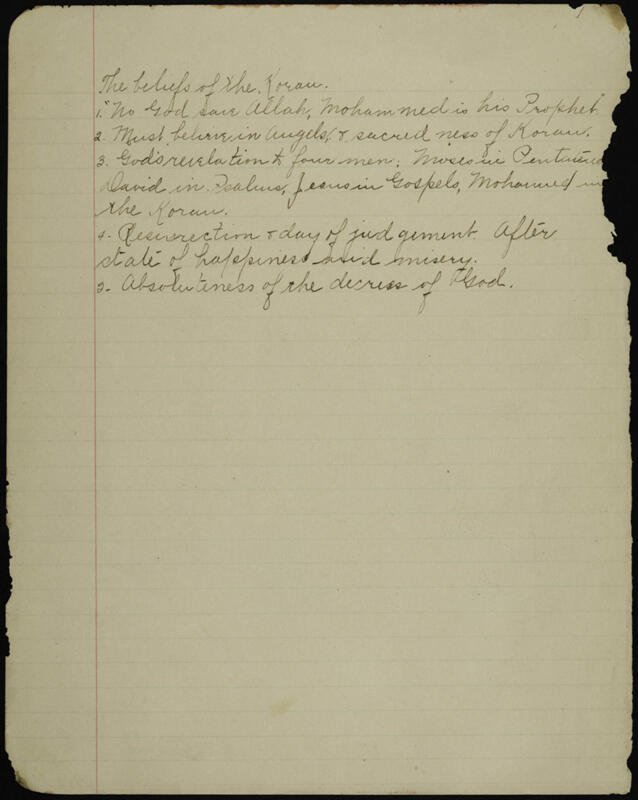 The beliefs of the Koran.
1. "No God save Allah, Mohammed is his Prophet
2. Must believe in Angels, & sacred ness of Koran.
3. God's revelation to four men; Moses in
David in Psalms, Jesus in Gospels, Mohammed in
the Koran.
4. Resurrection & day of judgement. After
state of happiness and misery.
5. Absoluteness of the decrees of God.